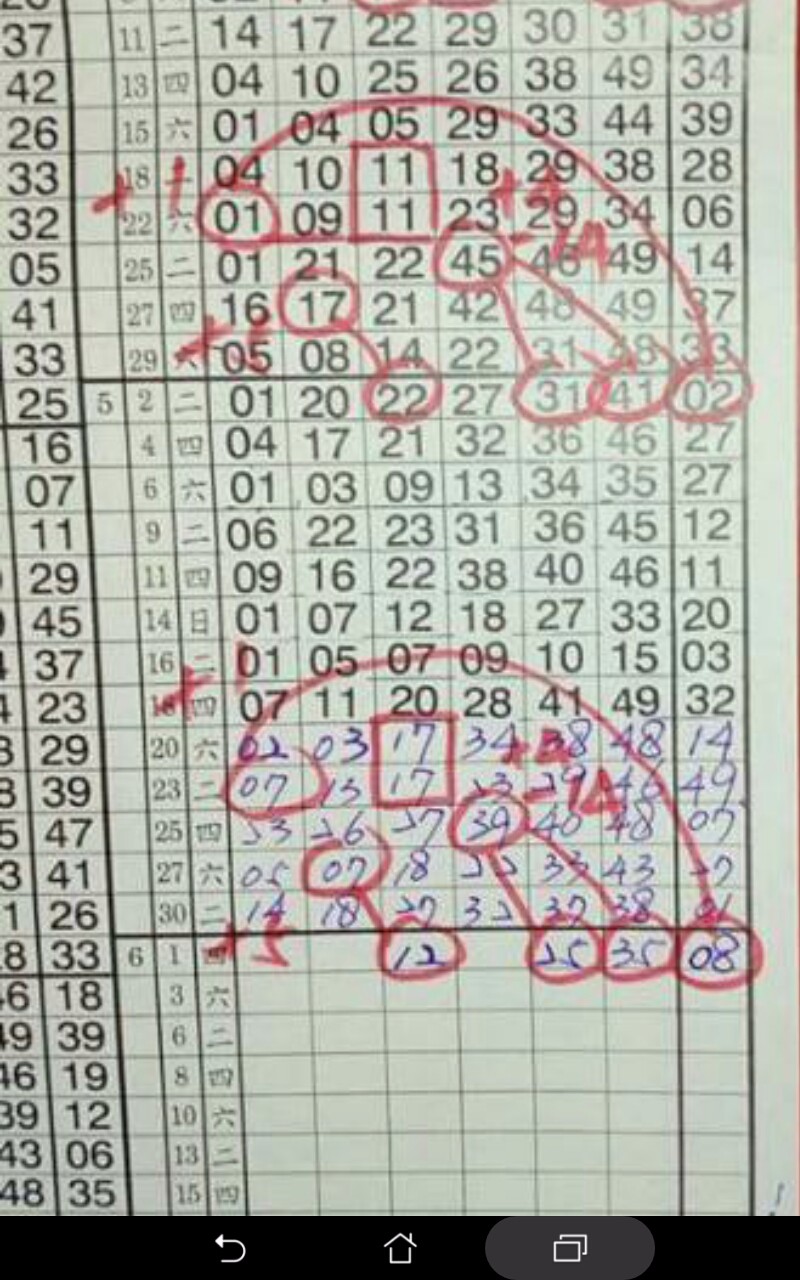 37 11 二 14 17 22 29 30 31 38
42 13 四 04 10 25 26 38 49 34
26 15 六 01 04 05 29 33 44 39
33 18 04 10 11 18 29 38 28
32 22 六 01 09 11 23 29 34 06
05 25 二 01 21 22 45 46 49 14
41 27 四 16 17 21 42 48 49 37
33 29 六 05 08 14 22 31 48 33
25 5 2 二 01 20 22 27 31 41 02
16 4 四 04 17 21 32 36 46 27
07 6 六 01 03 09 13 34 35 27
11 9 二 06 22 23 31 36 45 12
29 11 四 09 16 22 38 40 46 11
45 14 日 01 07 12 18 27 33 20
37 16 二 01 05 07 09 10 15 03
23 18 四 07 11 20 28 41 49 32
29 20 六 02 03 17 34 38 48 14
39 23 二 07 13 17 23 29 46 49
47 25 四 23 26 27 39 40 48 07
41 27 六 05 07 18 22 33 43 27
26 30 二 14 18 27 32 37 38 01
33 6 1 四 12 25 35 08
18 3 六
39 6 二
46 19 8 四
39 12 10 六
43 06 13 二
48 35 15 四
+1
-14
+5
+1
-14
+5